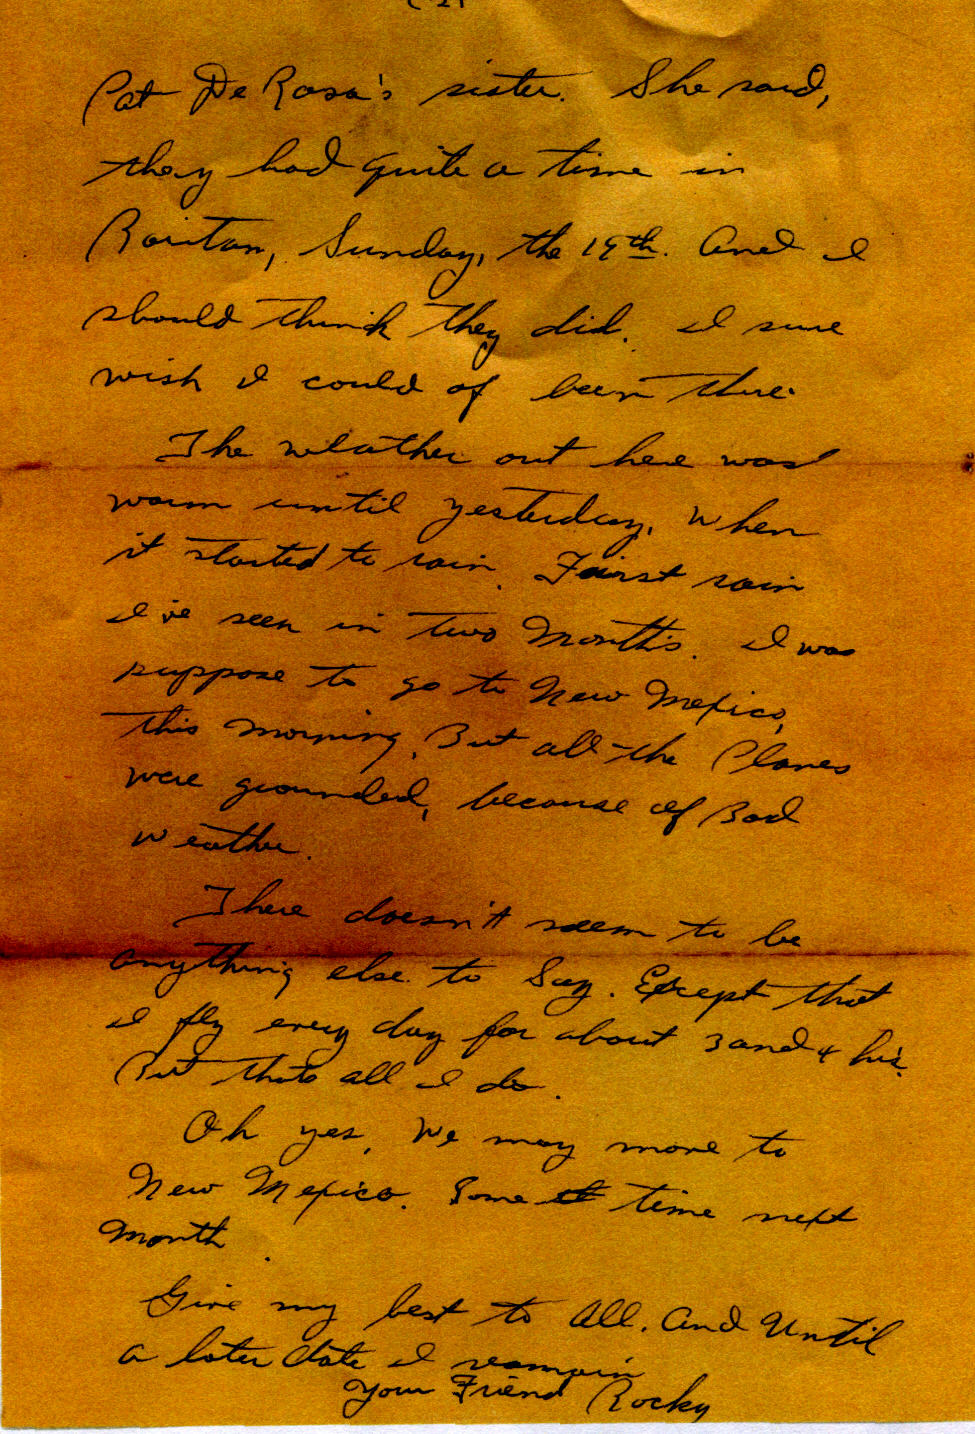 Pat De Rosa's sister. She said,
they had quite a time in
Raritan, Sunday, the 19th. And I
should think they did. I sure
wish I could of been there.
The weather out here was
warm until yesterday, when
it started to rain. Fairst rain
I've seen in two Months. I was
suppose to go to New Mexico,
this morning. But all the Planes
were grounded, because of Bad
weather.
There doesn't seem to be
anything else to Say. Except that
I fly every day for about 3 and 4 hrs.
But thats all I do.
Oh yes, We may move to
New Mexico. Some time next
Month.
Give my best to All. And Until
a later date I remain
Your Friend Rocky